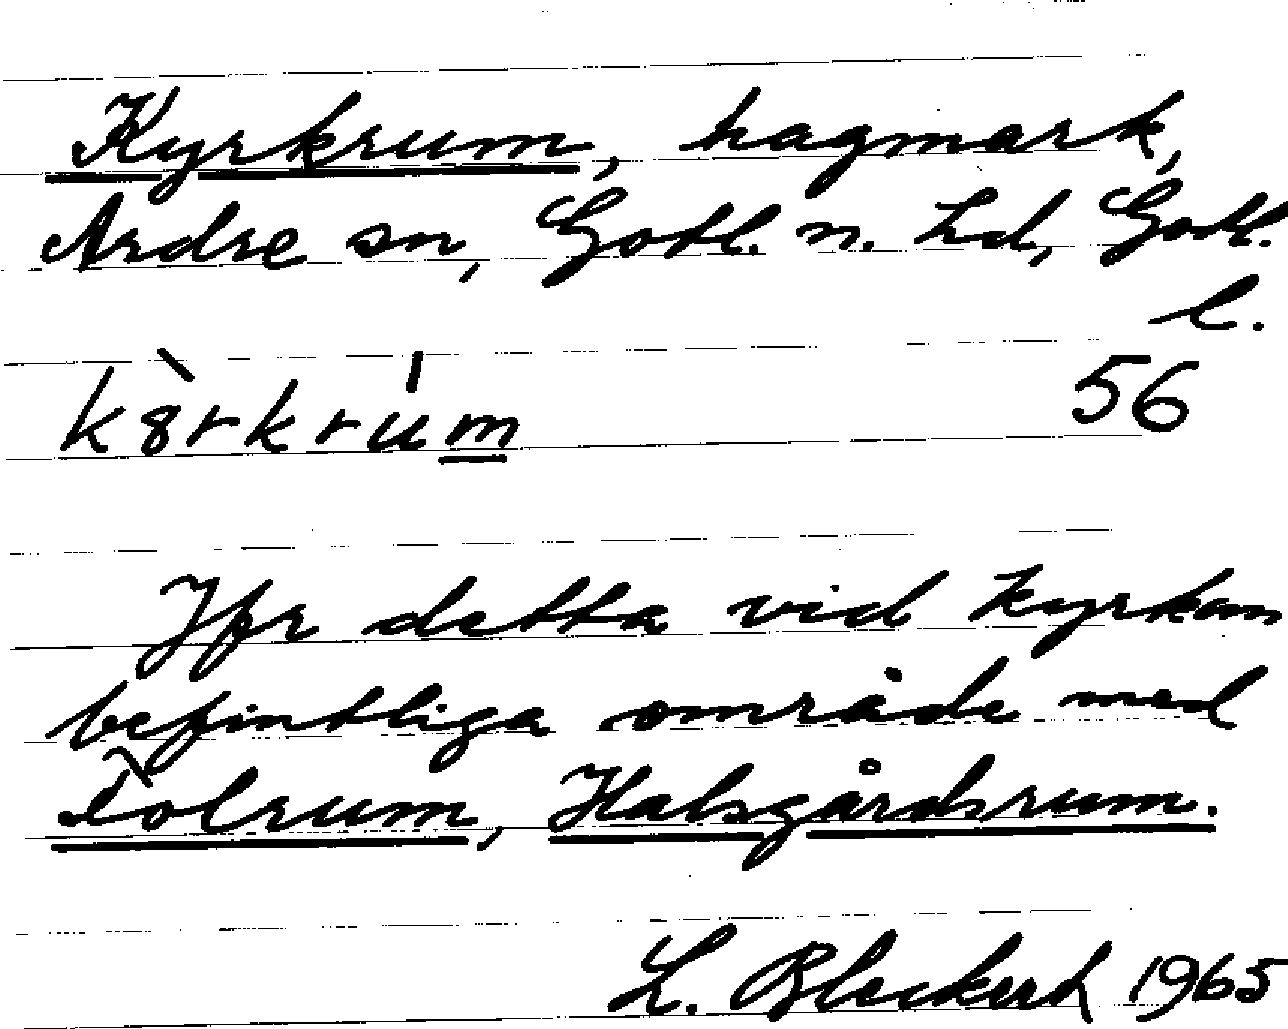 Kyrkrum, hagmark,
Ardre sn, Gotl. n. hd, Gotl.
l.
kȣ̀rkrúm 56
Jfr detta vid kyrkan
befintliga område med
Tolrum, Halsgårdsrum.
L. Bleckert 1965